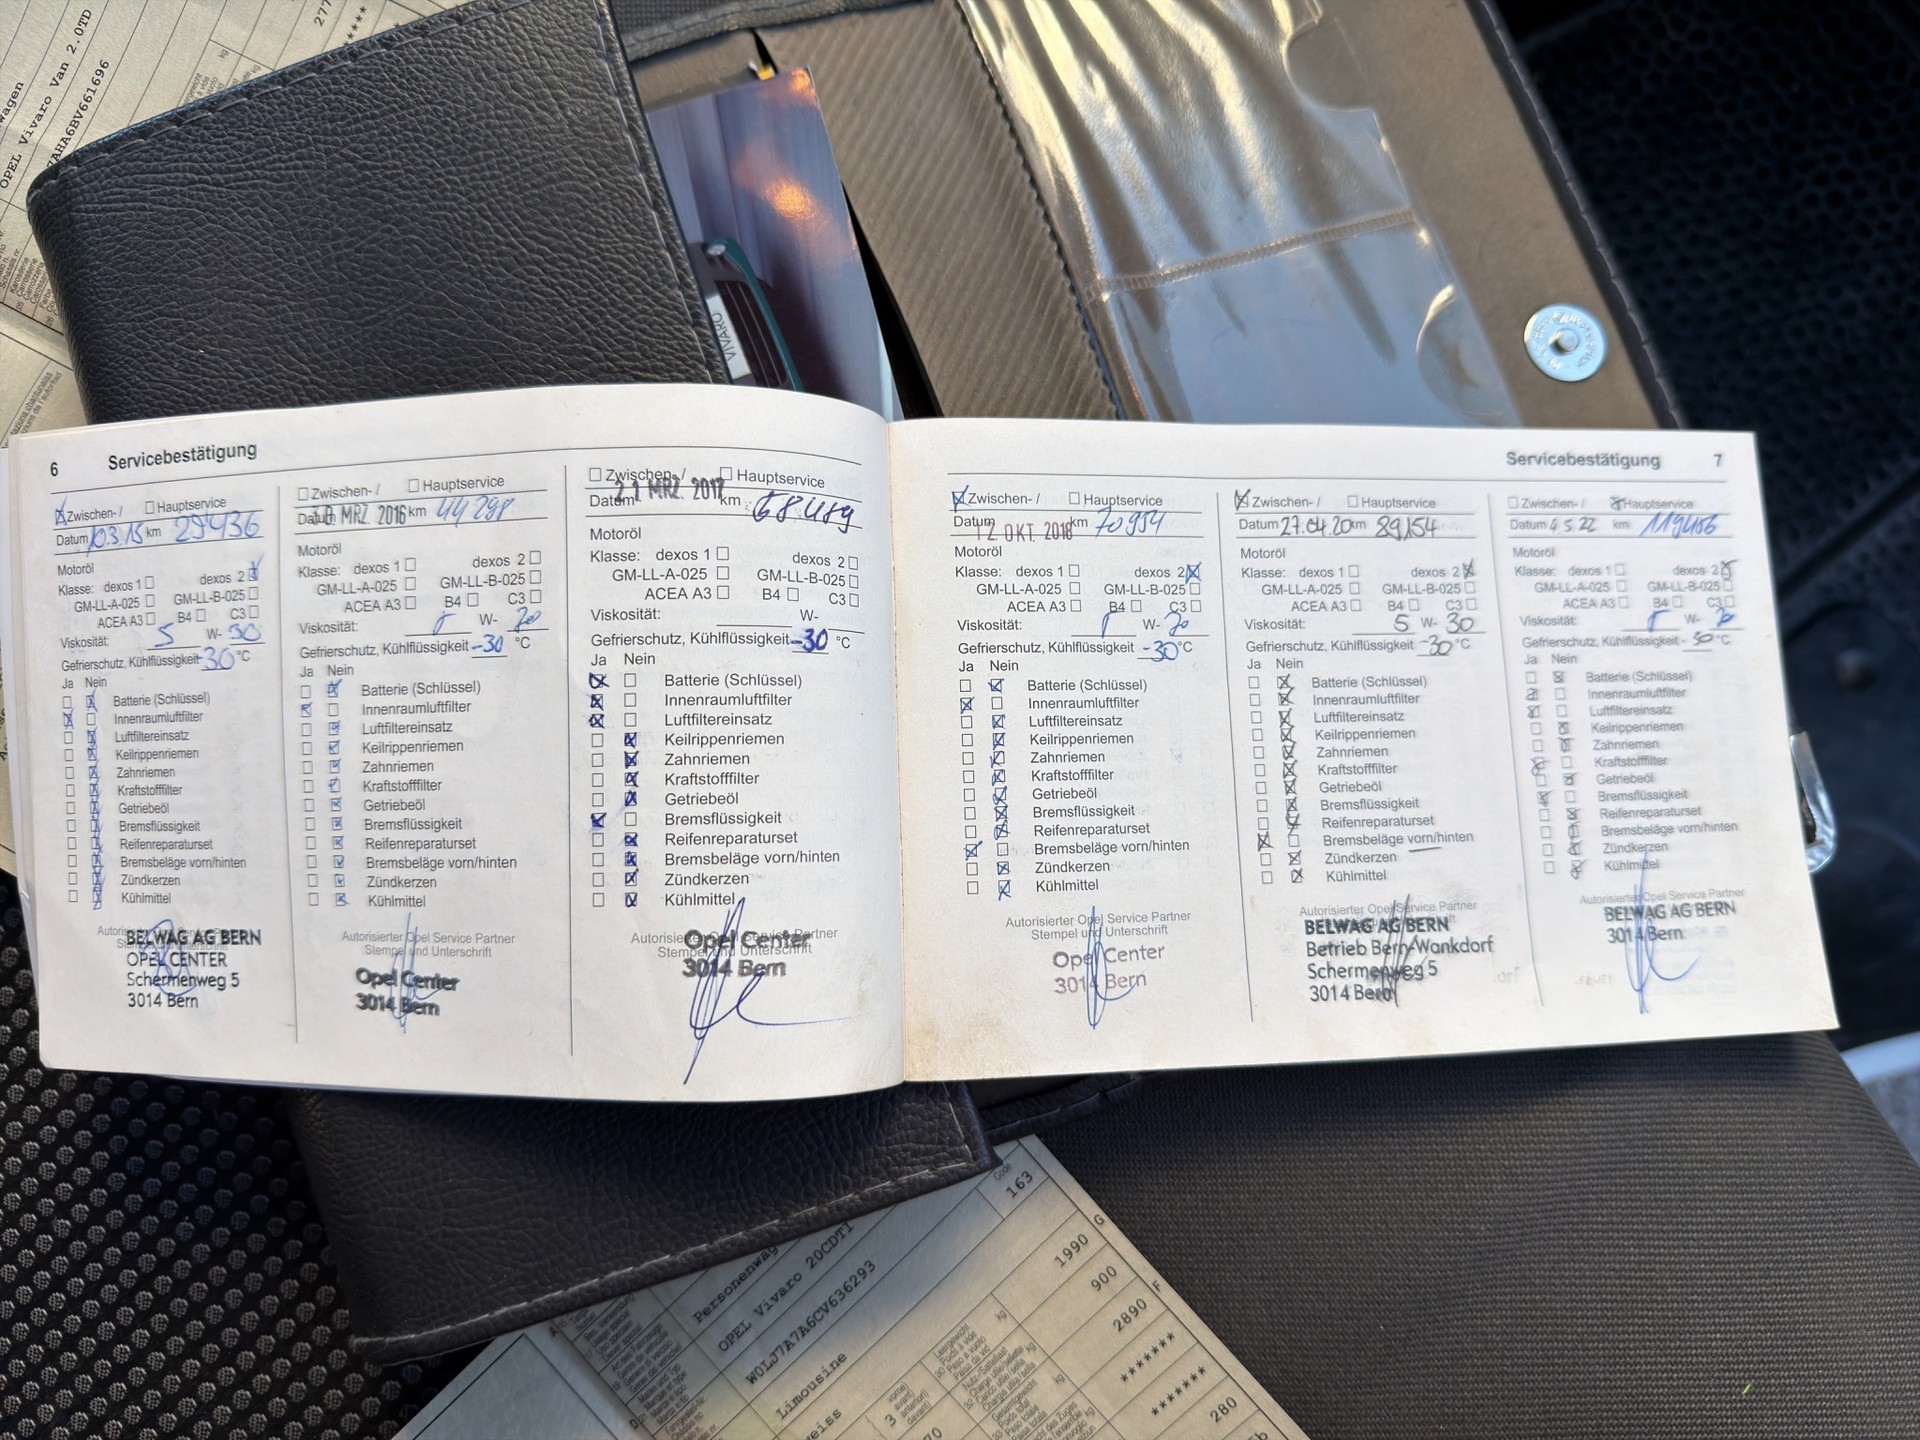 OPEL Vivaro Van 2.0TD
VIVARO
6 Servicebestätigung
Zwischen- / Hauptservice
Datum 10.3.15 km 29436
Motoröl
Klasse: dexos 1 dexos 2
GM-LL-A-025 GM-LL-B-025
ACEA A3 B4 C3
Viskosität: 5 W- 30
Gefrierschutz, Kühlflüssigkeit -30 °C
Ja Nein
Batterie (Schlüssel)
Innenraumluftfilter
Luftfiltereinsatz
Keilrippenriemen
Zahnriemen
Kraftstofffilter
Getriebeöl
Bremsflüssigkeit
Reifenreparaturset
Bremsbeläge vorn/hinten
Zündkerzen
Kühlmittel
BELWAG AG BERN
OPEL CENTER
Schermenweg 5
3014 Bern
Zwischen- / Hauptservice
Datum MRZ. 2016 km 44298
Motoröl
Klasse: dexos 1 dexos 2
GM-LL-A-025 GM-LL-B-025
ACEA A3 B4 C3
Viskosität: W-
Gefrierschutz, Kühlflüssigkeit -30 °C
Ja Nein
Batterie (Schlüssel)
Innenraumluftfilter
Luftfiltereinsatz
Keilrippenriemen
Zahnriemen
Kraftstofffilter
Getriebeöl
Bremsflüssigkeit
Reifenreparaturset
Bremsbeläge vorn/hinten
Zündkerzen
Kühlmittel
Autorisierter Opel Service Partner
Stempel und Unterschrift
Opel Center
3014 Bern
Zwischen- / Hauptservice
Datum 21 MRZ. 2017 km 68489
Motoröl
Klasse: dexos 1 dexos 2
GM-LL-A-025 GM-LL-B-025
ACEA A3 B4 C3
Viskosität: W-
Gefrierschutz, Kühlflüssigkeit -30 °C
Ja Nein
Batterie (Schlüssel)
Innenraumluftfilter
Luftfiltereinsatz
Keilrippenriemen
Zahnriemen
Kraftstofffilter
Getriebeöl
Bremsflüssigkeit
Reifenreparaturset
Bremsbeläge vorn/hinten
Zündkerzen
Kühlmittel
Autorisierter Opel Service Partner
Stempel und Unterschrift
Opel Center
3014 Bern
Servicebestätigung 7
Zwischen- / Hauptservice
Datum 12 OKT. 2018 km 70954
Motoröl
Klasse: dexos 1 dexos 2
GM-LL-A-025 GM-LL-B-025
ACEA A3 B4 C3
Viskosität: W-
Gefrierschutz, Kühlflüssigkeit -30 °C
Ja Nein
Batterie (Schlüssel)
Innenraumluftfilter
Luftfiltereinsatz
Keilrippenriemen
Zahnriemen
Kraftstofffilter
Getriebeöl
Bremsflüssigkeit
Reifenreparaturset
Bremsbeläge vorn/hinten
Zündkerzen
Kühlmittel
Autorisierter Opel Service Partner
Stempel und Unterschrift
Opel Center
3014 Bern
Zwischen- / Hauptservice
Datum 27.04.20 km 89154
Motoröl
Klasse: dexos 1 dexos 2
GM-LL-A-025 GM-LL-B-025
ACEA A3 B4 C3
Viskosität: 5 W- 30
Gefrierschutz, Kühlflüssigkeit -30 °C
Ja Nein
Batterie (Schlüssel)
Innenraumluftfilter
Luftfiltereinsatz
Keilrippenriemen
Zahnriemen
Kraftstofffilter
Getriebeöl
Bremsflüssigkeit
Reifenreparaturset
Bremsbeläge vorn/hinten
Zündkerzen
Kühlmittel
Autorisierter Opel Service Partner
BELWAG AG BERN
Betrieb Bern-Wankdorf
Schermenweg 5
3014 Bern
Zwischen- / Hauptservice
Datum 4.5.22 km 119486
Motoröl
Klasse: dexos 1 dexos 2
GM-LL-A-025 GM-LL-B-025
ACEA A3 B4 C3
Viskosität: W-
Gefrierschutz, Kühlflüssigkeit - 30 °C
Ja Nein
Batterie (Schlüssel)
Innenraumluftfilter
Luftfiltereinsatz
Keilrippenriemen
Zahnriemen
Kraftstofffilter
Getriebeöl
Bremsflüssigkeit
Reifenreparaturset
Bremsbeläge vorn/hinten
Zündkerzen
Kühlmittel
Autorisierter Opel Service Partner
BELWAG AG BERN
3014 Bern
Code
163
Personenwag
OPEL Vivaro 20CDTI
W0LJ7A7A6CV636293
Limousine
eiss
G
1990
900
F
2890
*******
*******
280